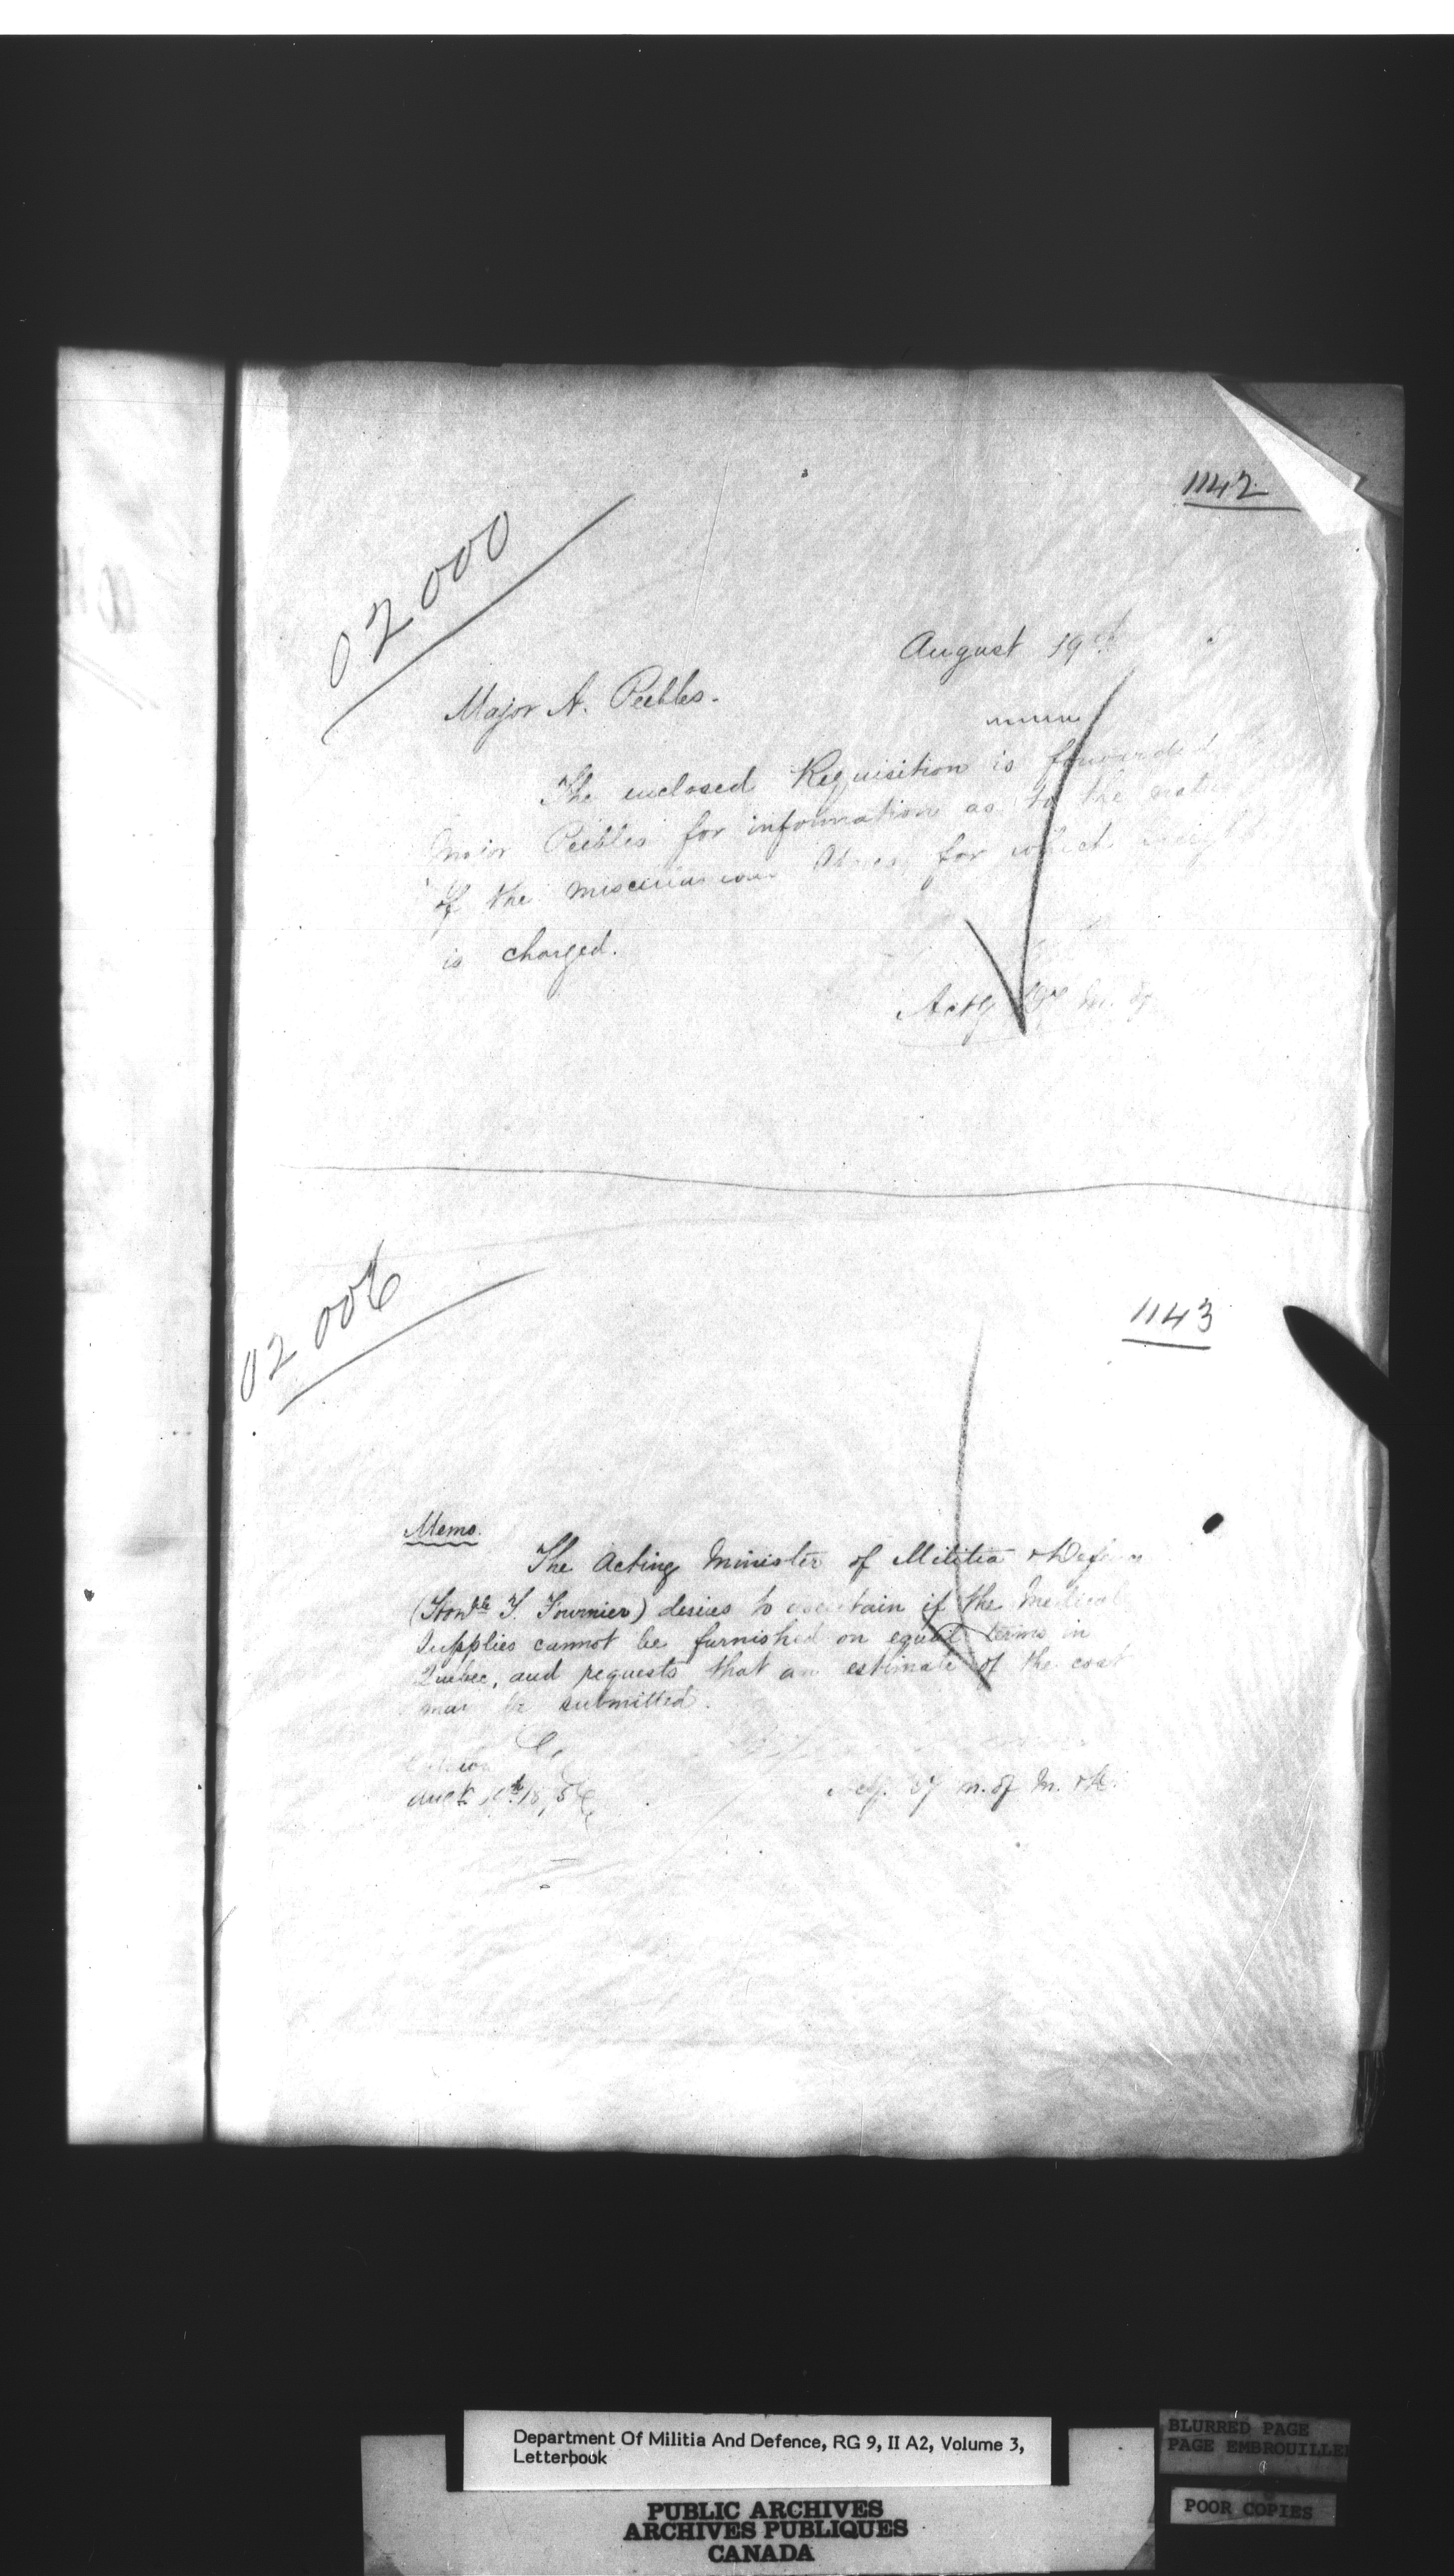 1142
02000
August 19th
Major A. Peebles.
The enclosed Requisition is forwarded
Major Peebles for information as to the
of the miscellaneous Stores for which
is charged.
Actg
02006
1143
Memo.
The Acting Minister of Militia & Defence
(Honble T. Fournier) desires to ascertain if the Medical
Supplies cannot be furnished on equal terms in
Quebec, and requests that an estimate of the cost
may be submitted.
Ottawa
Augt
Actg. m. of M. & D.
Department Of Militia And Defence, RG 9, II A2, Volume 3,
Letterbook
BLURRED PAGE
PAGE EMBROUILLE
POOR COPIES
PUBLIC ARCHIVES
ARCHIVES PUBLIQUES
CANADA